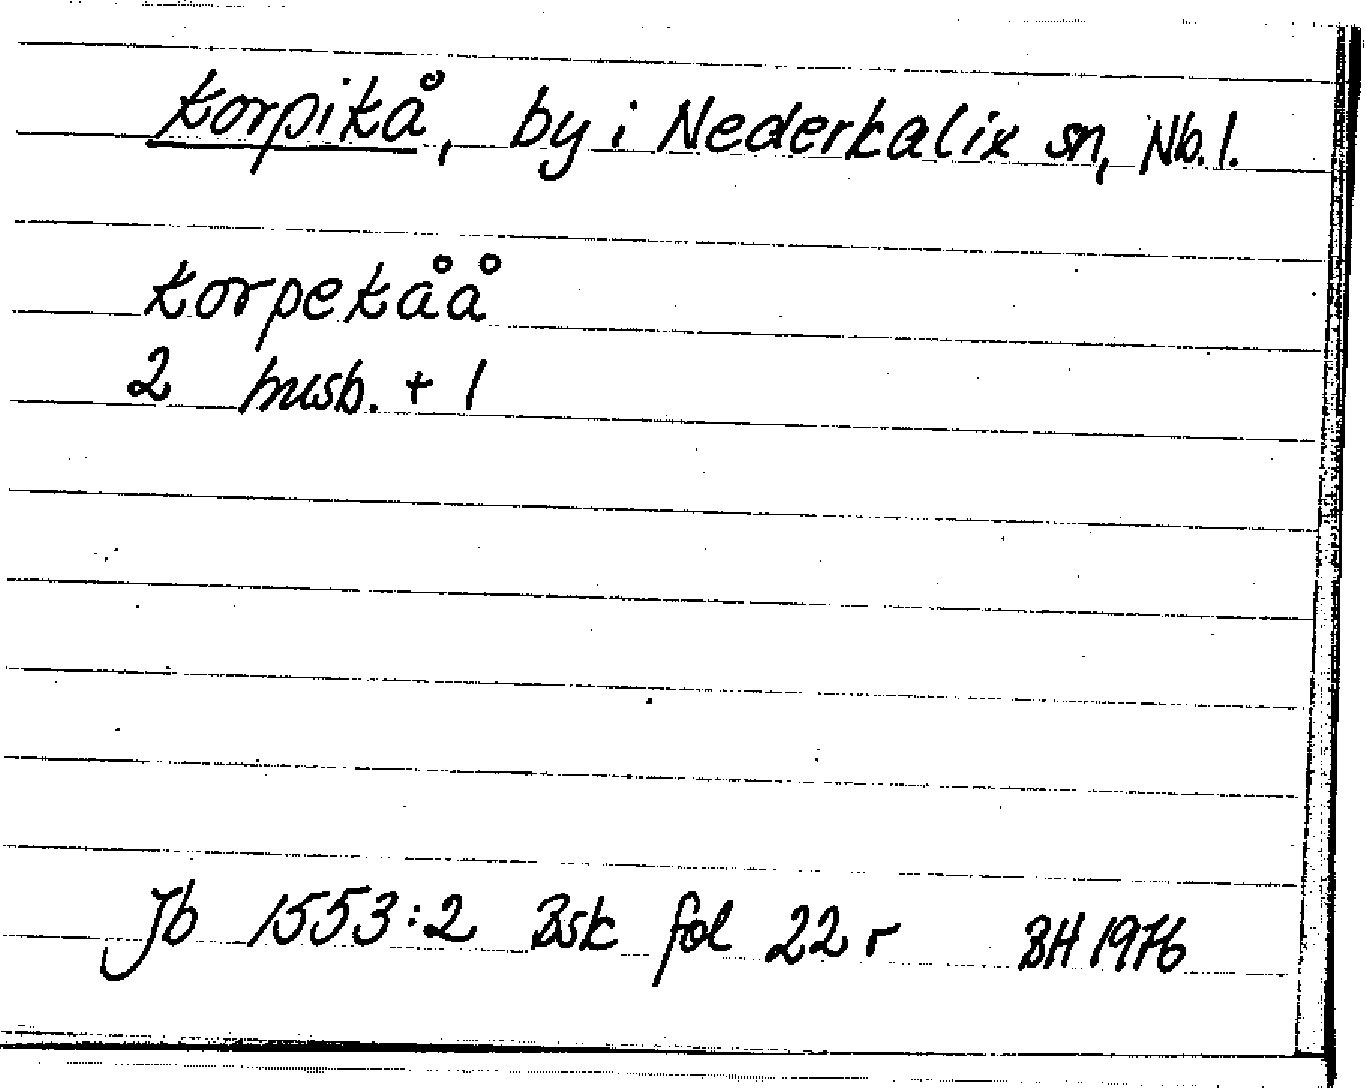 Korpikå, by i Nederkalix sn, Nb. l.
Korpekåå
2 husb. + 1
Jb 1553:2 Bsk fol 22 r BH 1976